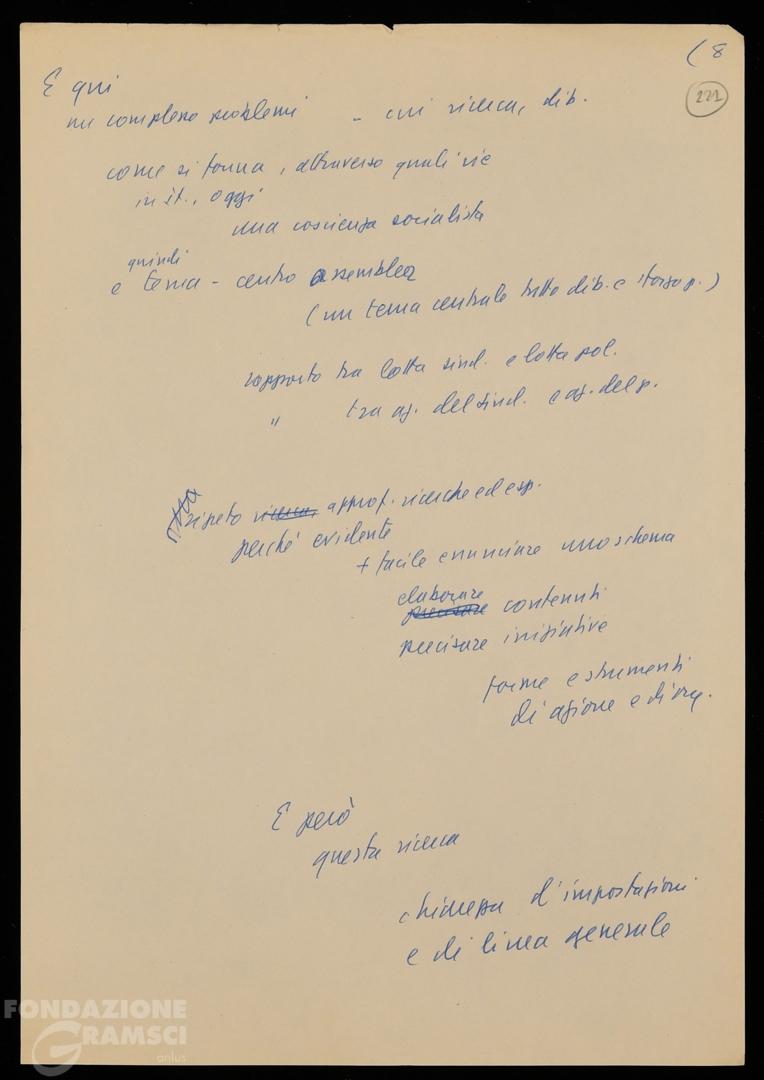 (8
221
E qui
un complesso problemi - cui ricerca, dib.
come si forma, attraverso quali vie
in it., oggi
una coscienza socialista
quindi
e tema - centro assemblea
(un tema centrale tutto dib. e sforzo p.)
rapporto tra lotta sind. e lotta pol.
" tra az. del sind. e az. del p.
ripeto ricerca, approf. ricerche ed esp.
perché evidente
+ facile enunciare uno schema
elaborare
precisare contenuti
precisare iniziative
forme e strumenti
di azione e di org.
E però
questa ricerca
chiarezza d'impostazioni
e di linea generale
FONDAZIONE
GRAMSCI
onlus